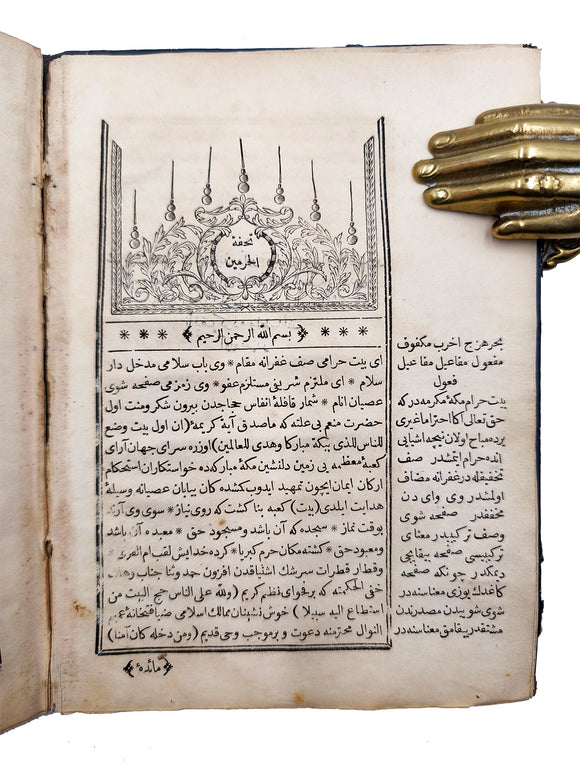 تحفة
الحرمين
بسم الله الرحمن الرحيم
ای بیت حرامی صف غفرانه مقام * وی باب سلامی مدخل دار
سلام * ای ملتزم شریفی مستلزم عفو * وی زمزمی صفحه شوی
عصیان انام * شمار قافلۀ انفاس حجاجدن بیرون شکر ومنت اول
حضرت منعم بی علته که ماصدق آیۀ کریمۀ (ان اول بیت وضع
للناس للذی ببکة مبارکا وهدی للعالمین) اوزره سرای جهان آرای
کعبۀ معظمه یی زمین دلنشین مکۀ مبارکه ده خواستکاران استحکام
ارکان ایمان ایچون تمهید ایدوب کشده کان بیابان عصیانه وسیلۀ
هدایت ایلدی (بیت) کعبه بنا کشت که روی نیاز * سوی وی آرند
بوقت نماز * سجده که آن باشد ومسجود حق * معبده آن باشد
ومعبود حق * کشته مکان حرم کبریا * کرده خدایش لقب ام القری *
وقطار قطرات سرشك اشتیاقدن افزون حمد وثنا جناب
خفی الحکمتنه که بر فحوای نظم کریم (ولله علی الناس حج البیت من
استطاع الیه سبیلا) خوش نشینان ممالك اسلامی ضیافتخانۀ عمیم
النوال محترمنه دعوت و بر موجب وحی قدیم (ومن دخله کان آمنا)
مائدۀ
بحر هزج اخرب مکفوف
مفعول مفاعیل مفاعیل
فعول
بیت حرام مکۀ مکرمه در که
حق تعالی اکا احترام
برده مباح اولان نیجه اشیایی
انده حرام ایتمشدر صف
تخفیفله در غفرانه مضاف
اولمشدر وی وای دن
مخففدر صفحه شوی
وصف ترکیبدر معنای
ترکیبیسی صفحه ییقایجی
دیمکدر چونکه صفحه
کاغدك یوزی معناسنه در
شوی شوییدن مصدرندن
مشتقدر یقامق معناسنه در